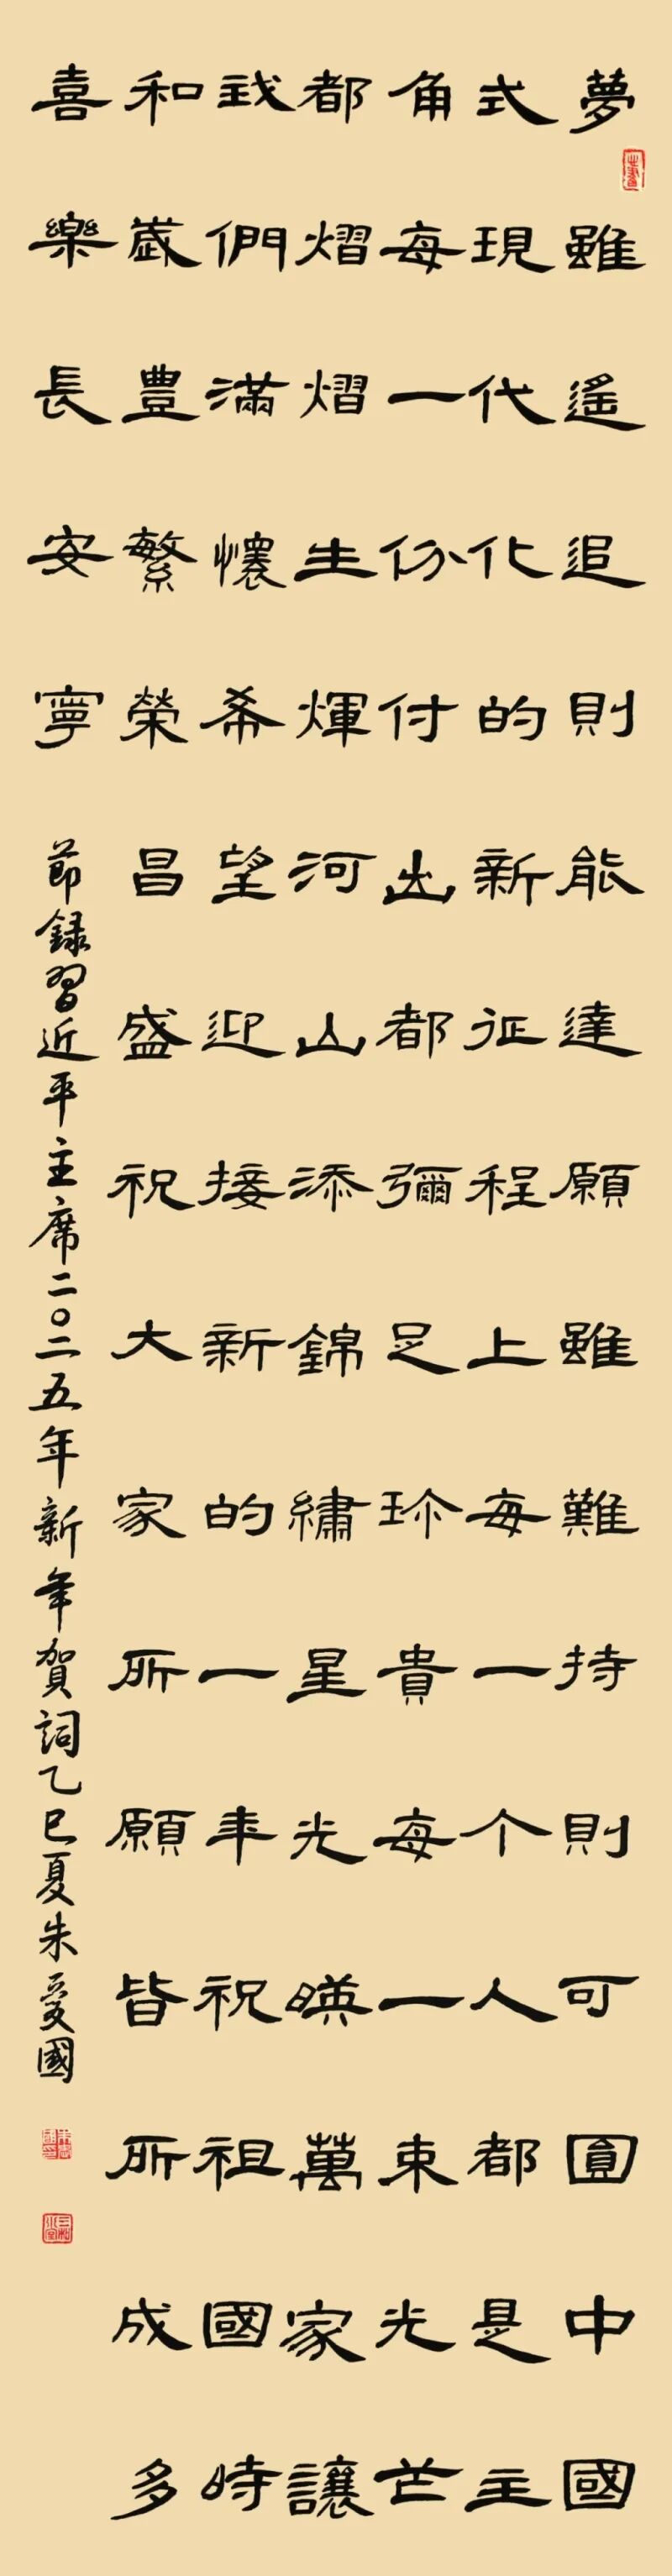 夢雖遙追則能達願雖難持則可圓中國
式現代化的新征程上每一个人都是主
角每一份付出都彌足珎貴每一束光芒
都熠熠生輝河山添錦繡星光暎萬家讓
我們滿懷希望迎接新的一年祝祖國時
和歲豐繁榮昌盛祝大家所願皆所成多
喜樂長安寧
節録習近平主席二〇二五年新年賀詞乙巳夏朱愛國